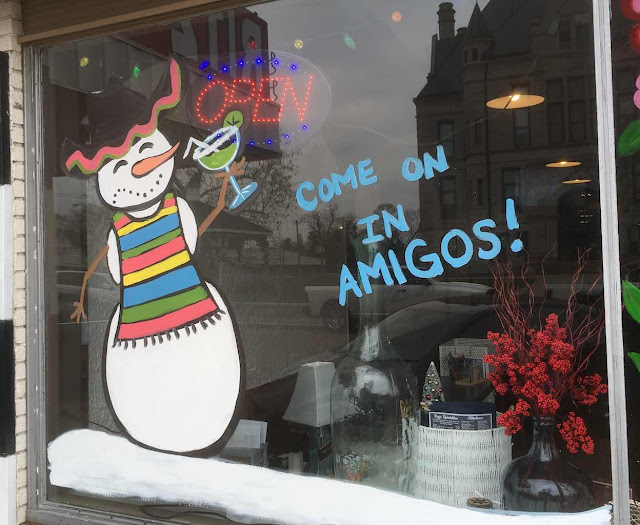 OPEN
COME ON
IN
AMIGOS!